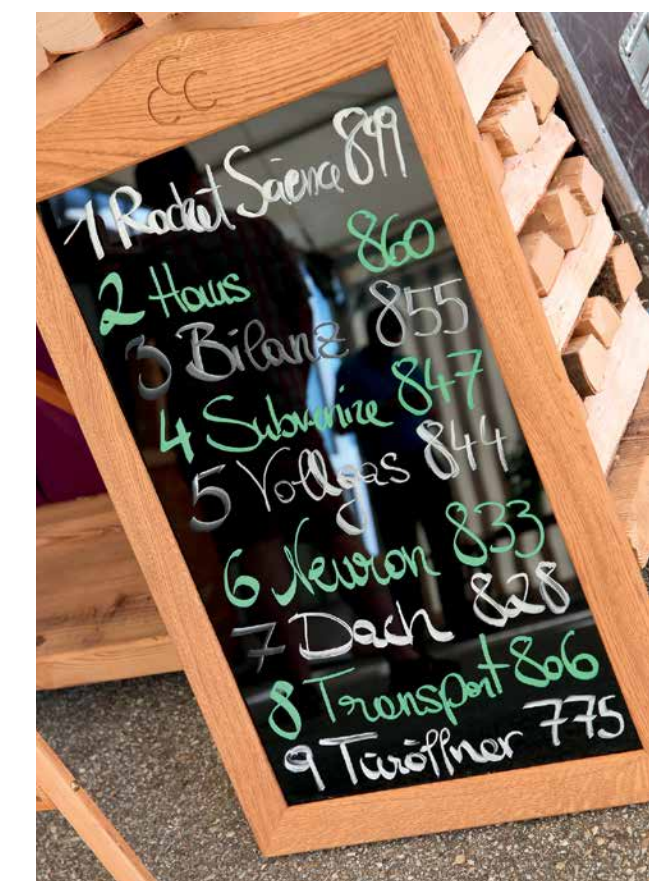 CCC
1 Rocket Science 899
2 Haus 860
3 Bilanz 855
4 Subvenize 847
5 Vollgas 844
6 Neuron 833
7 Dach 828
8 Transport 806
9 Türöffner 775